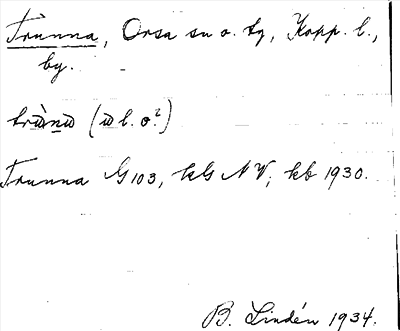 Trunna, Orsa sn o. tg, Kopp. l.,
by.
(l. o?)
Trunna G 103, kG NV; kb 1930.
B. Lindén 1934.